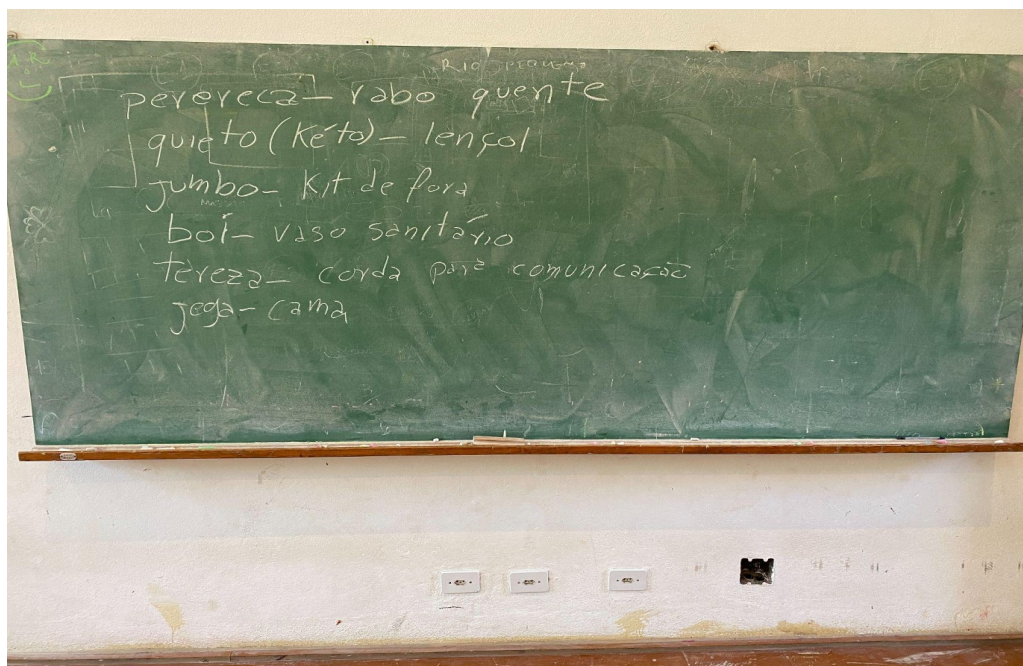 RIO PEQUENO
perereca – rabo quente
quieto (kéto) – lençol
jumbo – Kit de fora
boi – vaso sanitário
tereza – corda para comunicação
jega – cama